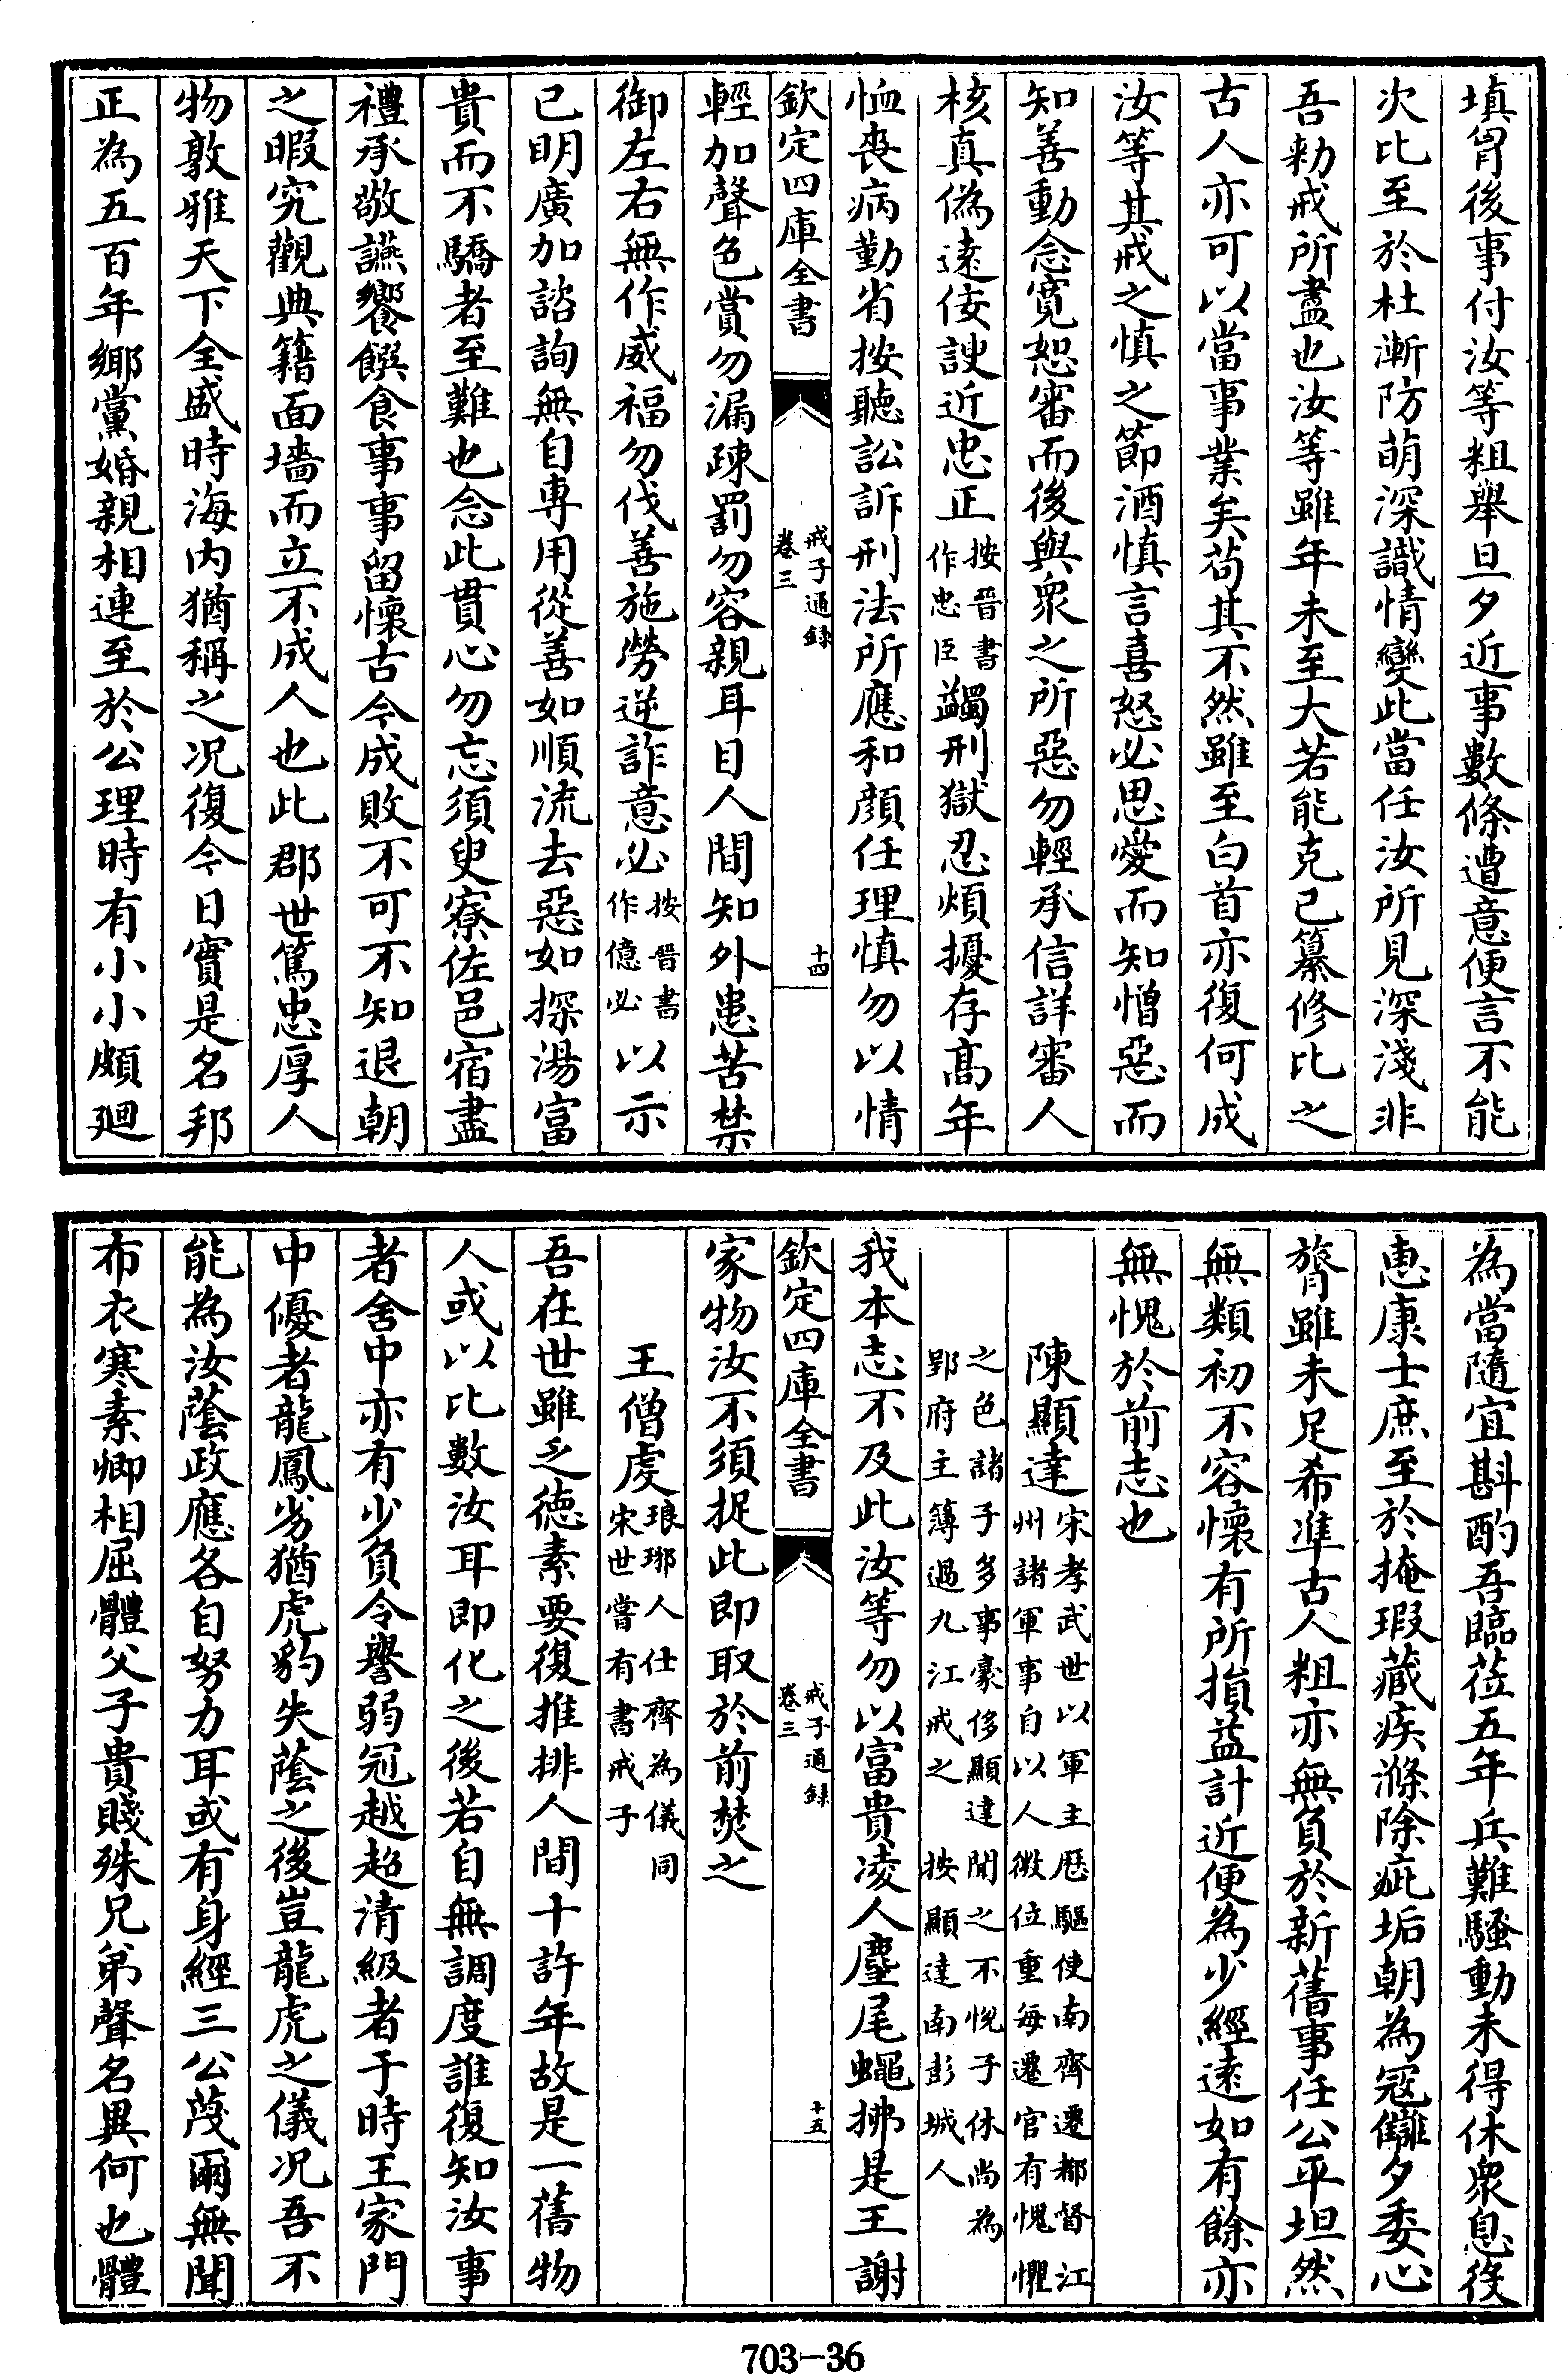 填胷後事付汝等粗舉旦夕近事數條遭意便言不能
次比至於杜漸防萌深識情變此當任汝所見深淺非
吾勑戒所盡也汝等雖年未至大若能克己纂修比之
古人亦可以當事業矣苟其不然雖至白首亦復何成
汝等其戒之慎之節酒慎言喜怒必思愛而知憎惡而
知善動念寛恕審而後與衆之所惡勿輕承信詳審人
核真偽遠佞諛近忠正按晉書作忠臣蠲刑獄忍煩擾存髙年
恤喪病勤省按聽訟訴刑法所應和顔任理慎勿以情
欽定四庫全書 戒子通録 卷三 十四
輕加聲色賞勿漏疎罰勿容親耳目人間知外患苦禁
御左右無作威福勿伐善施勞逆詐意必按晉書作億必以示
已明廣加諮詢無自専用從善如順流去惡如探湯富
貴而不驕者至難也念此貫心勿忘須臾寮佐邑宿盡
禮承敬讌饗饌食事事留懷古今成敗不可不知退朝
之暇究觀典籍面墻而立不成人也此郡世篤忠厚人
物敦雅天下全盛時海内猶稱之况復今日實是名邦
正為五百年鄉黨婚親相連至於公理時有小小頗廻
為當隨宜斟酌吾臨莅五年兵難騷動未得休衆息役
惠康士庶至於掩瑕藏疾滌除疵垢朝為冦讎夕委心
膂雖未足希凖古人粗亦無負於新舊事任公平坦然
無類初不容懷有所損益計近便為少經遠如有餘亦
無愧於前志也
陳顯達宋孝武世以軍主厯驅使南齊遷都督江州諸軍事自以人微位重每遷官有愧懼
之色諸子多事豪侈顯達聞之不悅子休尚為郢府主簿過九江戒之 按顯達南彭城人
我本志不及此汝等勿以富貴凌人麈尾蠅拂是王謝
欽定四庫全書 戒子通録 卷三 十五
家物汝不須捉此即取於前焚之
王僧虔琅琊人仕齊為儀同宋世嘗有書戒子
吾在世雖乏徳素要復推排人間十許年故是一舊物
人或以比數汝耳即化之後若自無調度誰復知汝事
者舍中亦有少負令譽弱冠越超清級者于時王家門
中優者龍鳳劣猶虎豹失蔭之後豈龍虎之儀况吾不
能為汝蔭政應各自努力耳或有身經三公蔑爾無聞
布衣寒素卿相屈體父子貴賤殊兄弟聲名異何也體
703-36